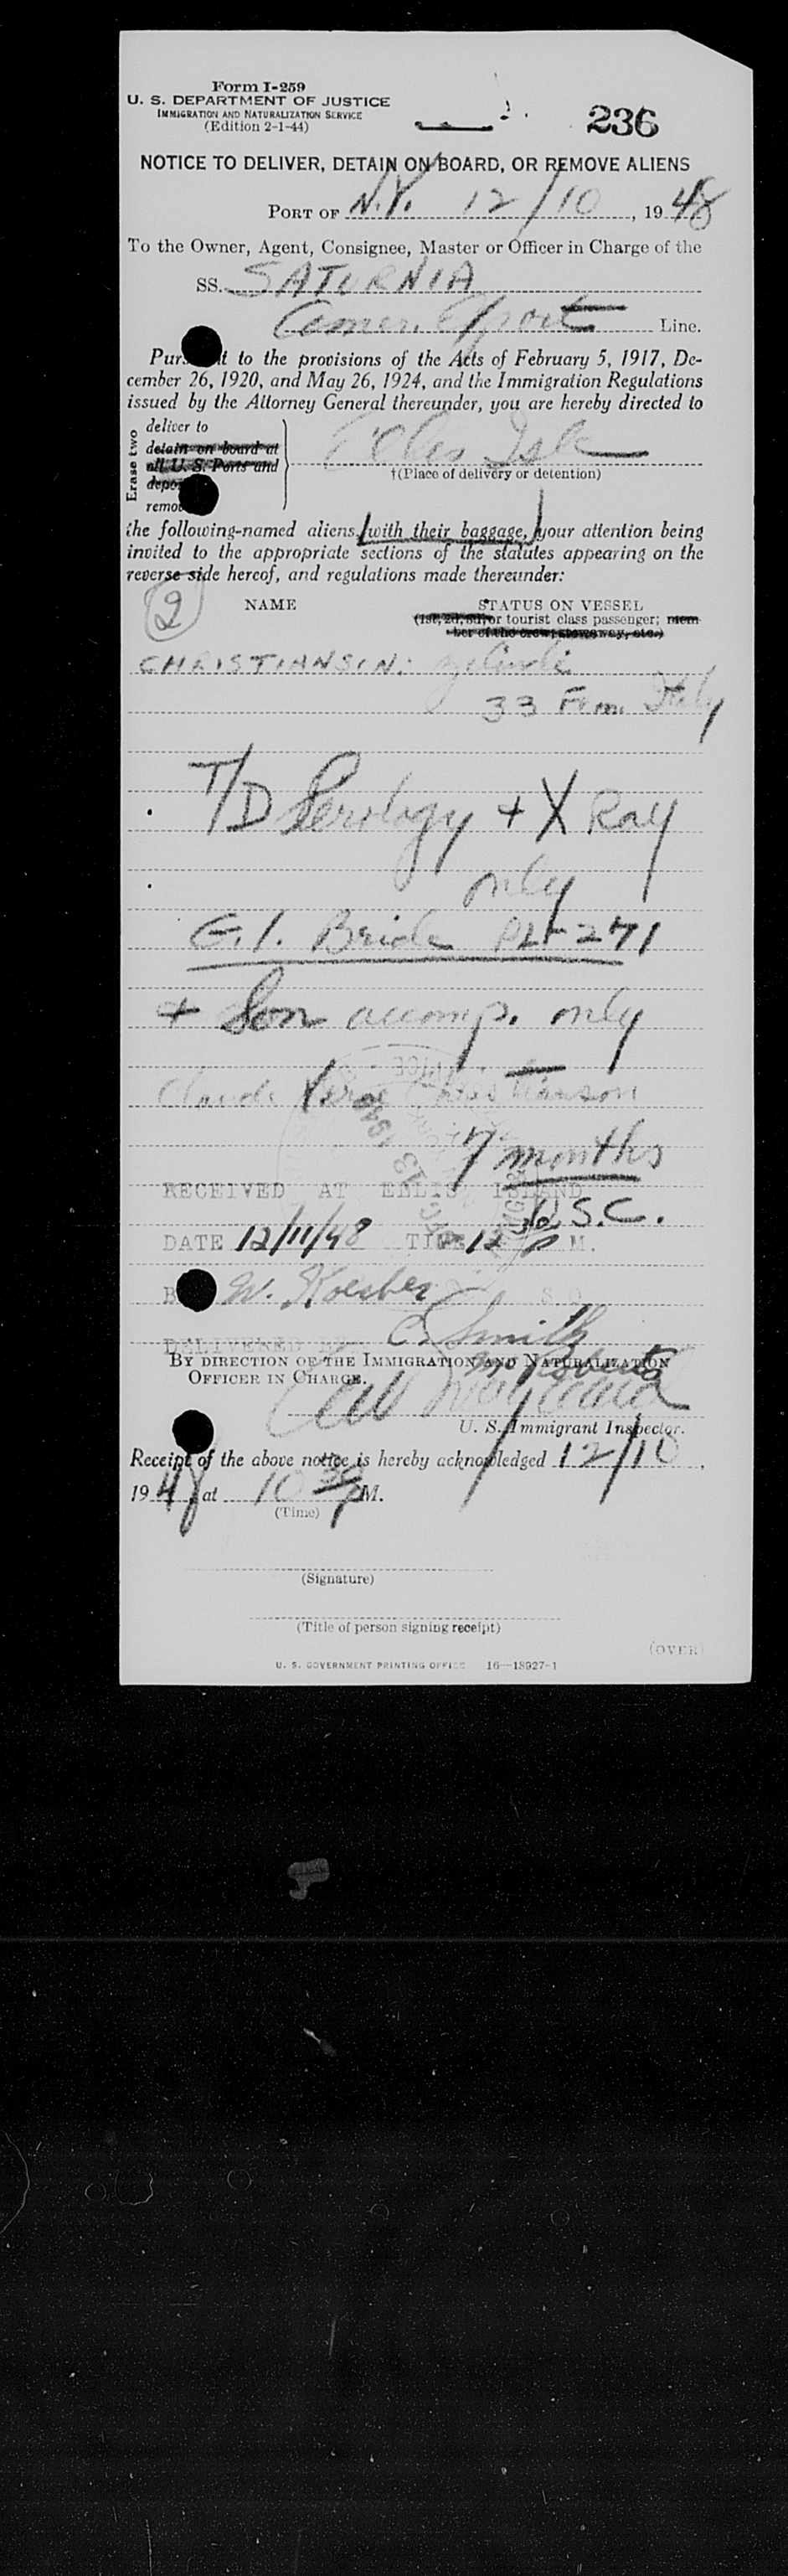 Form I-259
U. S. DEPARTMENT OF JUSTICE
IMMIGRATION AND NATURALIZATION SERVICE
(Edition 2-1-44)
236
NOTICE TO DELIVER, DETAIN ON BOARD, OR REMOVE ALIENS
PORT OF N.Y. 12/10, 1948
To the Owner, Agent, Consignee, Master or Officer in Charge of the
SS. SATURNIA
Amer. Export Line.
to the provisions of the Acts of February 5, 1917, De-
cember 26, 1920, and May 26, 1924, and the Immigration Regulations
issued by the Attorney General thereunder, you are hereby directed to
Erase two
deliver to
detain on board at
all U. S. Ports and
Isle
†(Place of delivery or detention)
the following-named aliens, with their baggage, your attention being
invited to the appropriate sections of the statutes appearing on the
reverse side hereof, and regulations made thereunder:
2
NAME STATUS ON VESSEL
(1st, 2d, 3d, or tourist class passenger; mem-
ber of the crew, stowaway, etc.)
CHRISTIANSIN:
33 Fem. Italy
T/D Serology + X Ray
only
G.I. Bride PL-271
+ Son accomp. only
Claude Christianson
7 months
RECEIVED AT ELLIS ISLAND
U.S.C.
DATE 12/11/48 TIME 12 P M.
W.
DELIVERED
C. Smith
BY DIRECTION OF THE IMMIGRATION AND NATURALIZATION
OFFICER IN CHARGE.
U. S. Immigrant Inspector.
Receipt of the above notice is hereby acknowledged 12/10,
1948, at 10 30 P M.
(Time)
(Signature)
(Title of person signing receipt)
(OVER)
U. S. GOVERNMENT PRINTING OFFICE 16—18927-1